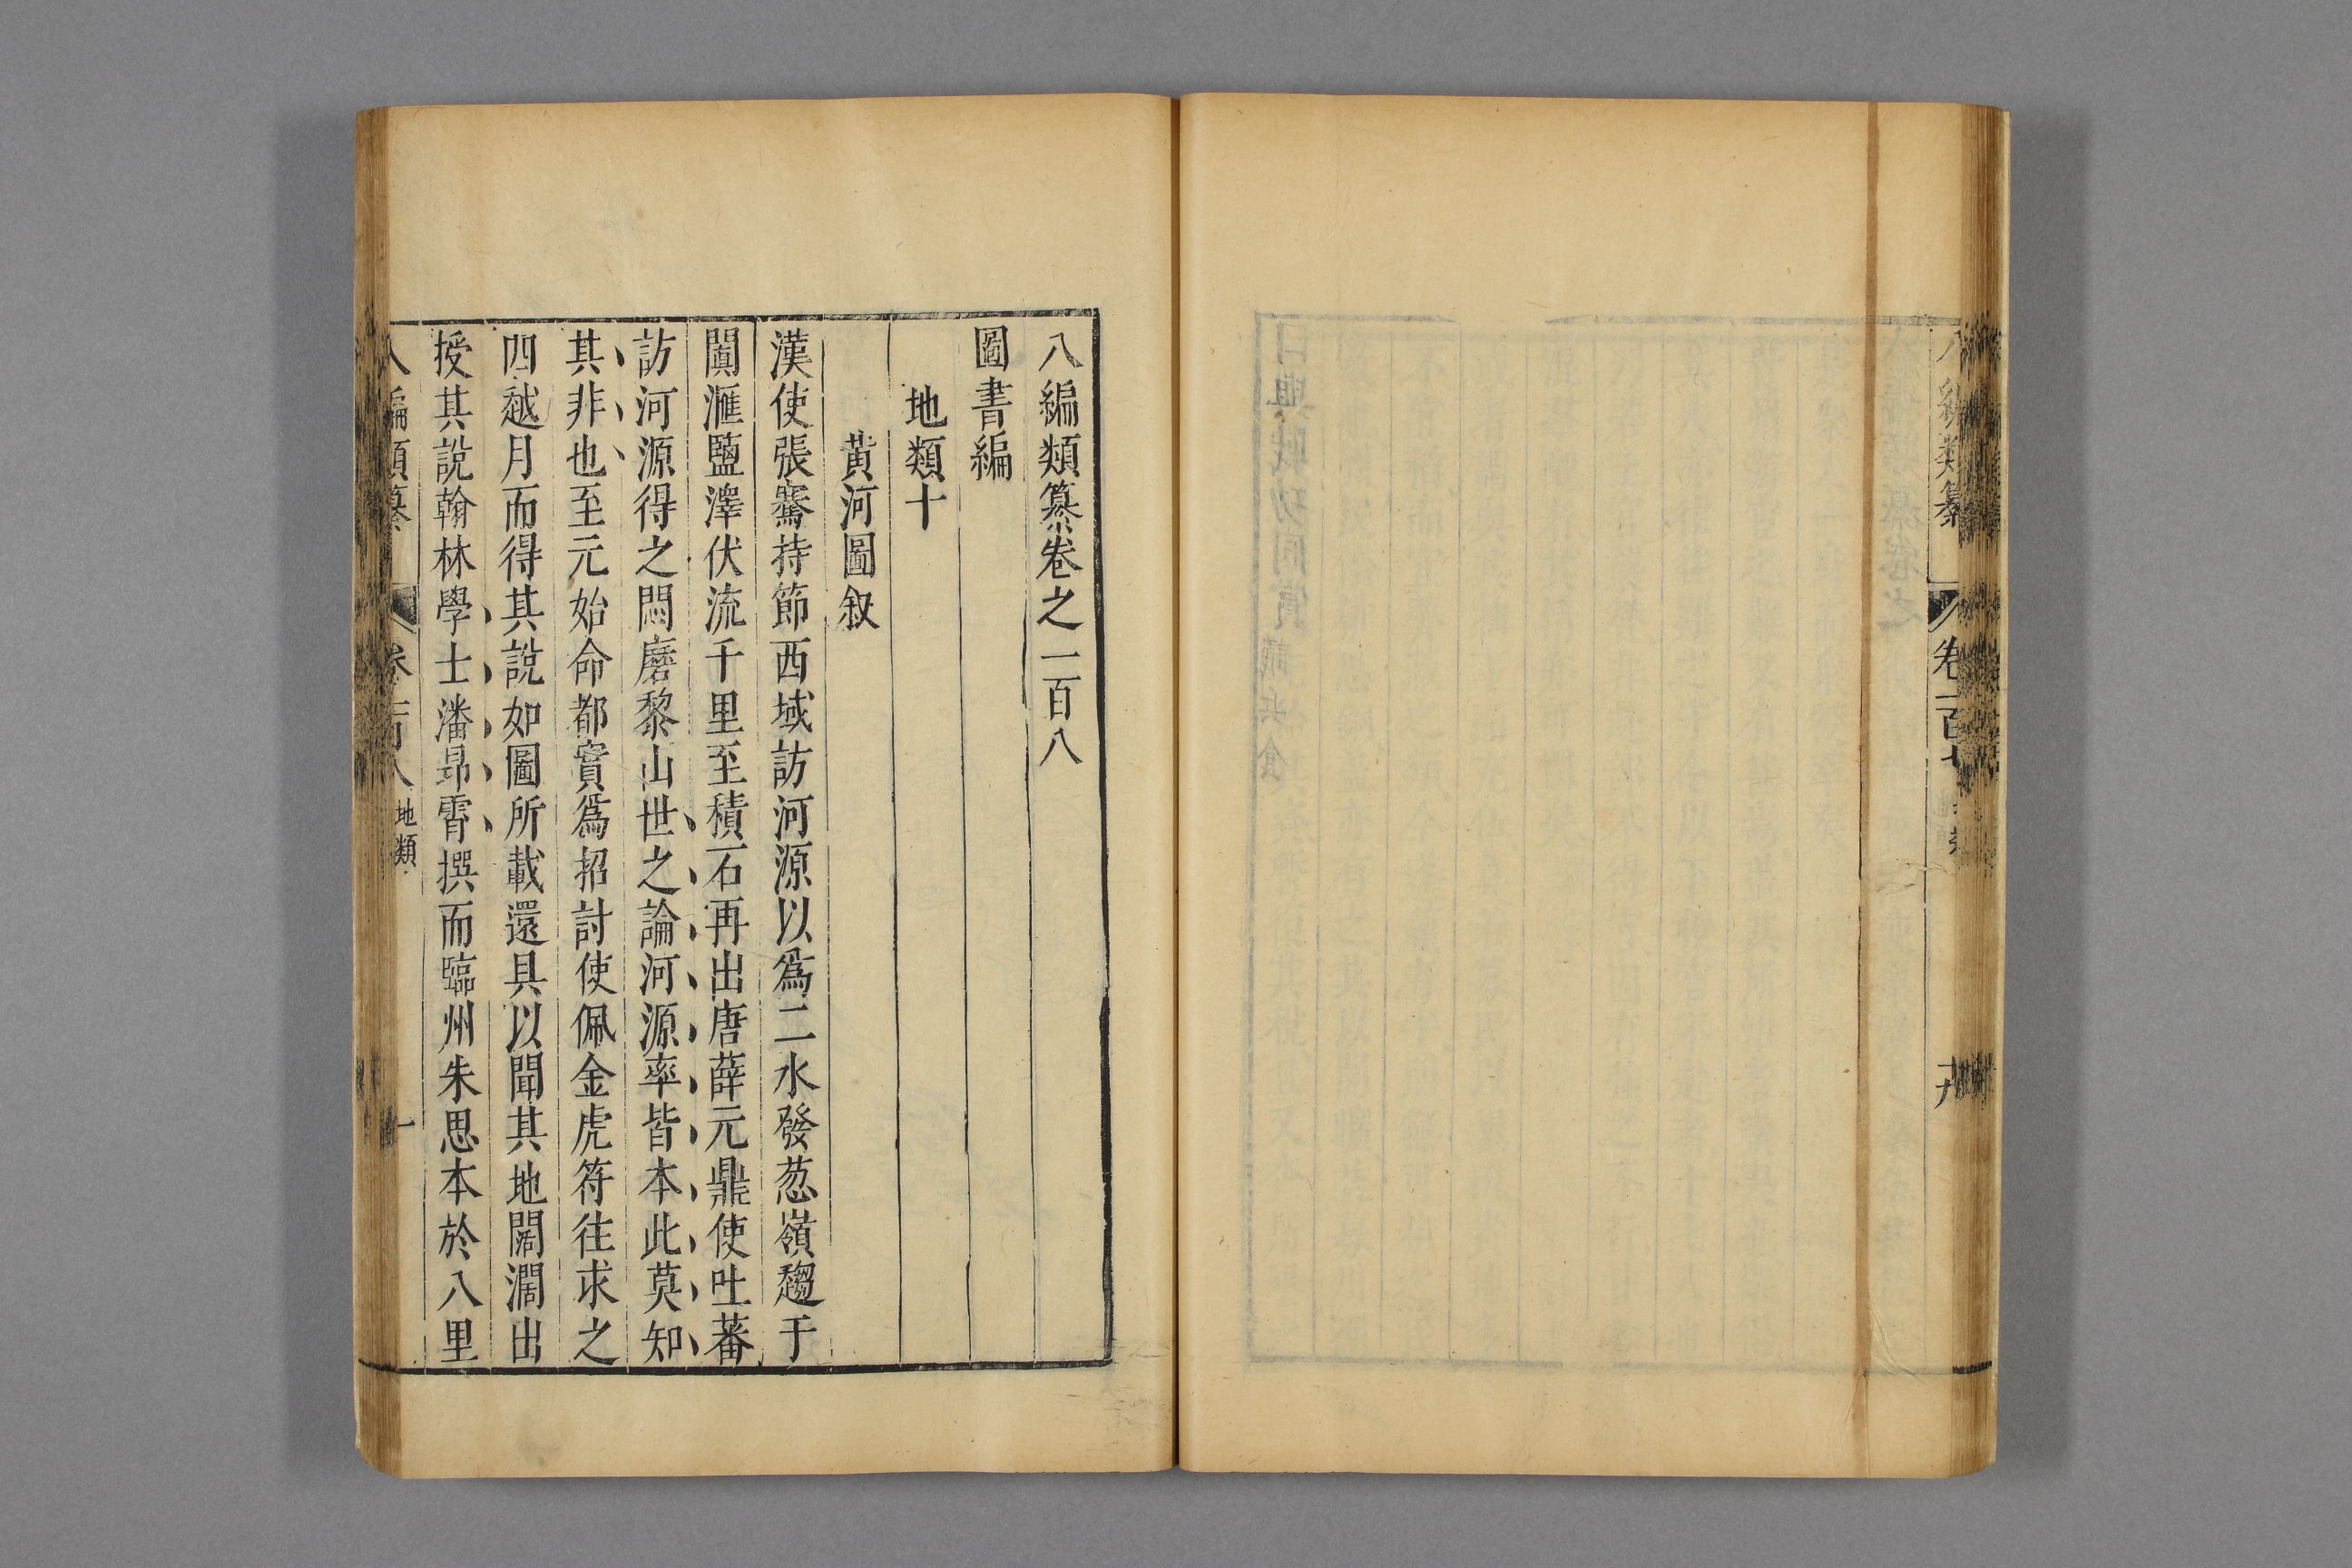 八編類纂卷之一百八
圖書編
地類十
黃河圖叙
漢使張騫持節西域訪河源以爲二水發葱嶺趨于
闐滙鹽澤伏流千里至積石再出唐薛元鼎使吐蕃
訪河源得之悶磨黎山世之論河源率皆本此莫知
其非也至元始命都實爲招討使佩金虎符往求之
四越月而得其說如圖所載還具以聞其地闊濶出
授其說翰林學士潘昻霄撰而臨州朱思本於八里
八編類纂 卷一百八 地類 一